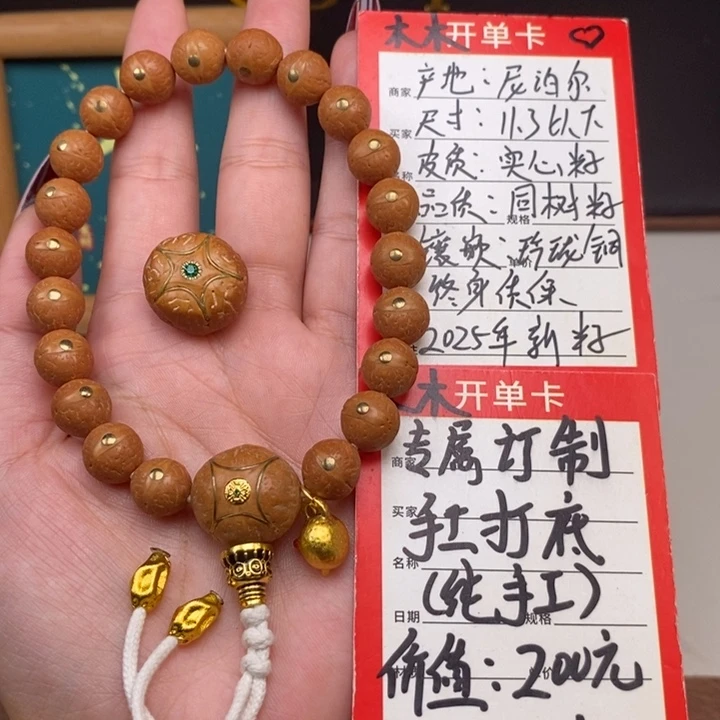 木木开单卡
商家 产地：尼泊尔
买家 尺寸：11.3以下
名称 皮质：实心籽
品质：同树籽
规格
镶嵌：玲珑铜
终身质保
2025年新籽
木开单卡
商家 专属订制
买家 手工打底
名称 (纯手工)
日期 规格
价值：200元